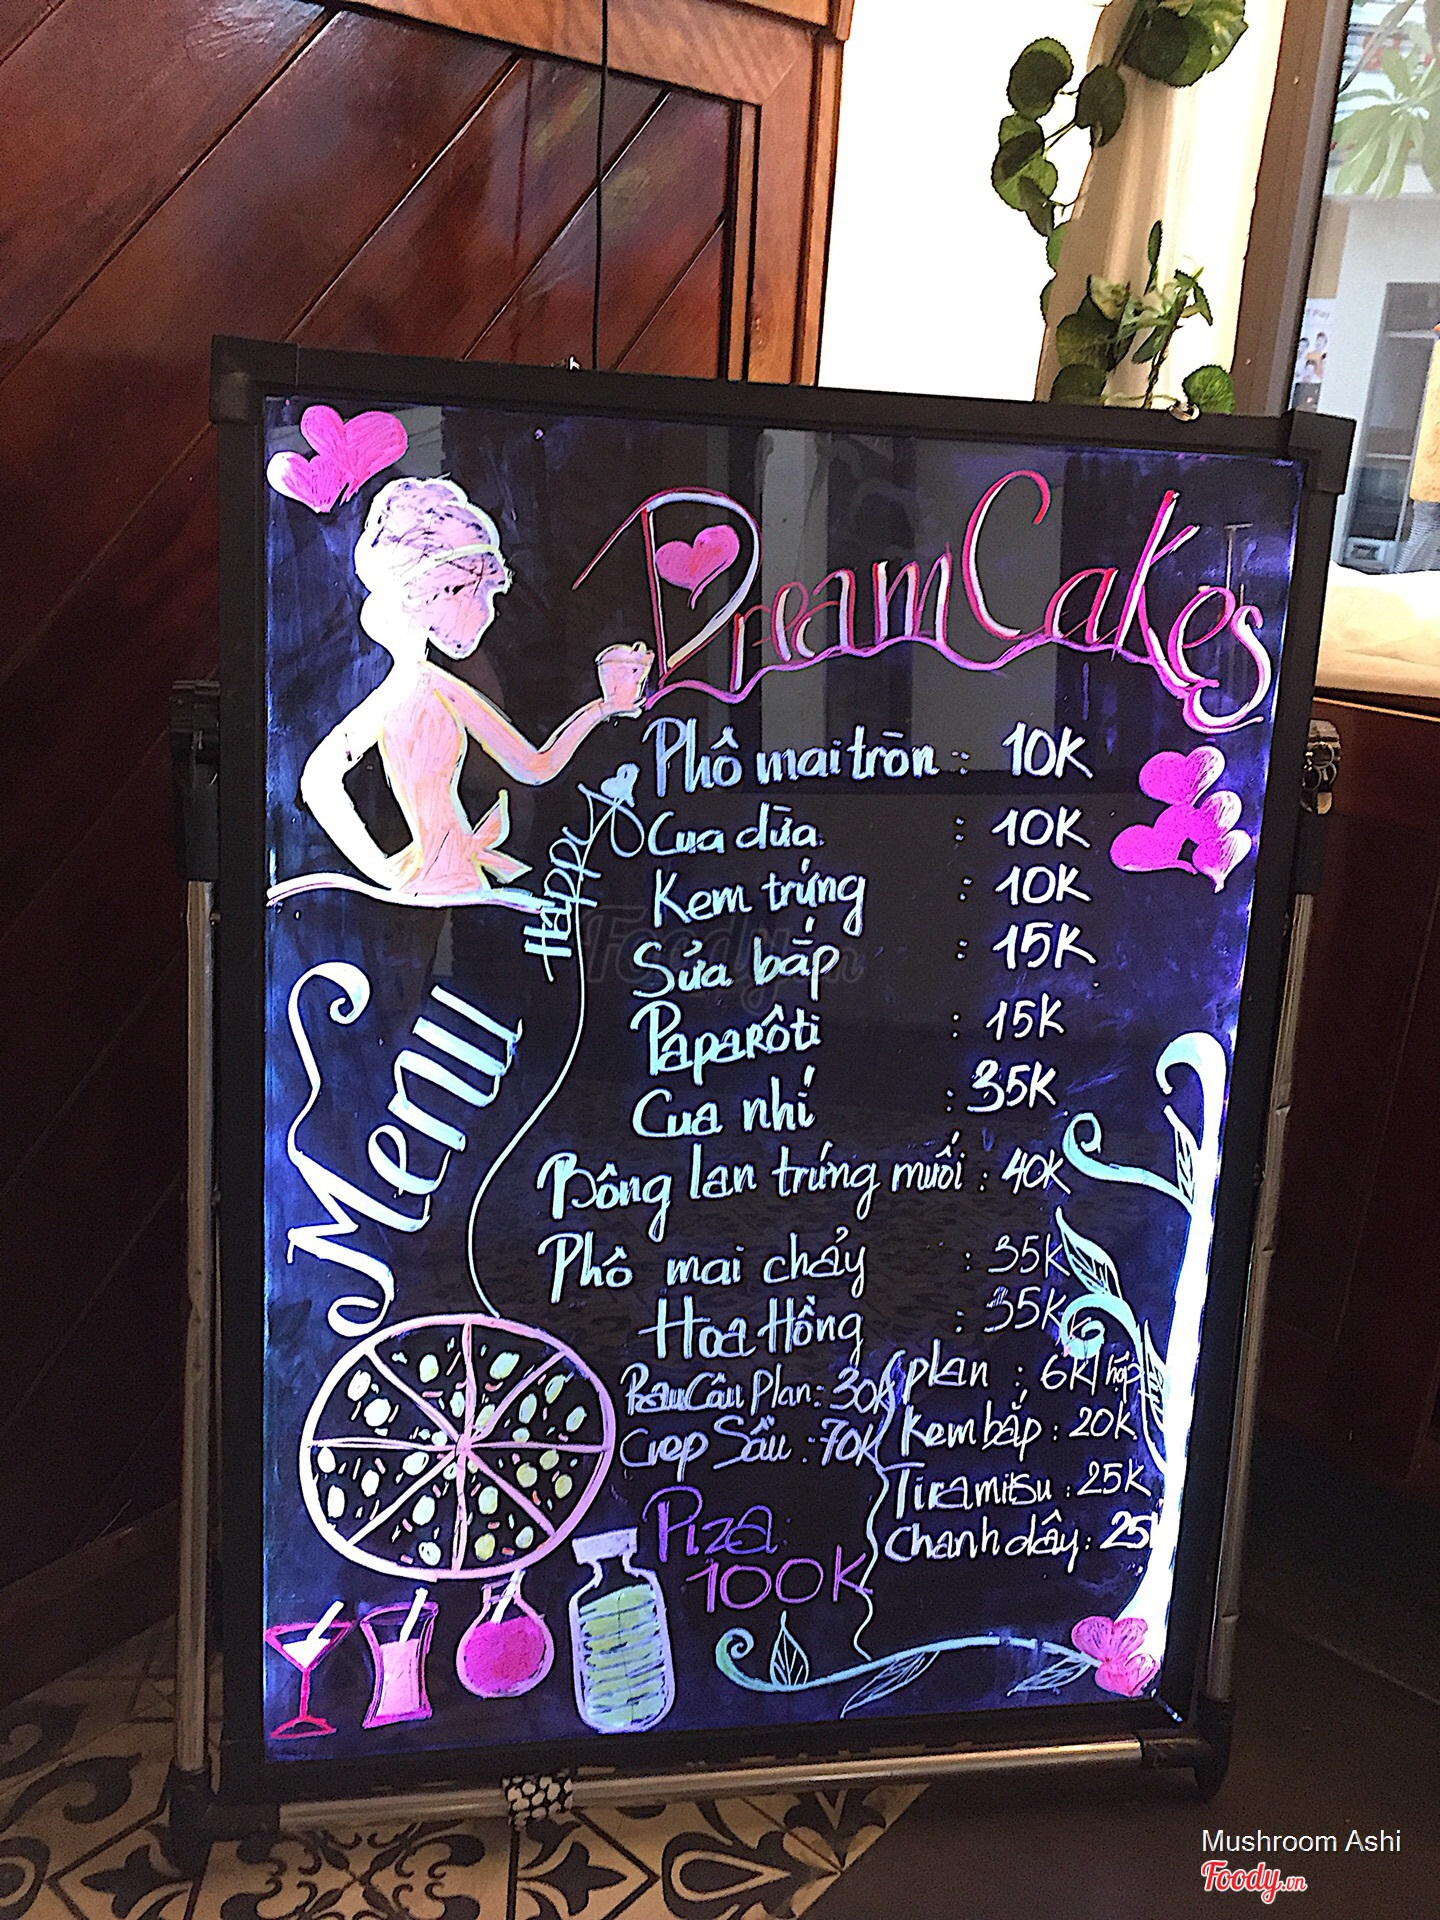 Dream Cakes
Phô mai tròn : 10K
Cua dừa : 10K
Kem trứng : 10K
Sữa bắp : 15K
Paparôti : 15K
Cua nhí : 35K
Bông lan trứng muối : 40K
Phô mai chảy : 35K
Hoa Hồng : 35K
Rau Câu Plan: 30K
Crep Sầu : 70K
Piza:
100K
plan : 6K/hộp
Kem bắp : 20K
Tiramitsu : 25K
chanh dây: 25
Happy
Menu
Foody.vn
Mushroom Ashi
Foody.vn